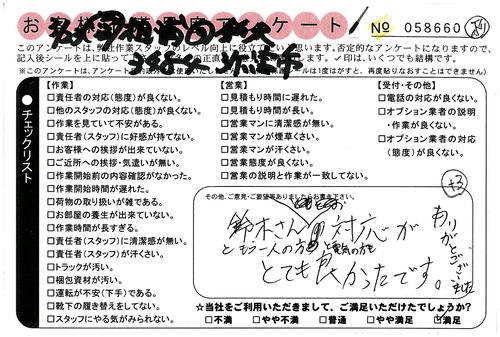 お
アンケート
№ 058660
このアンケートは、弊社作業スタッフのレベル向上に役立て
思います。否定的なアンケートになりますので、
記入後シールを上に貼って
いくつでも結構です。
シールは1度はがすと、再度貼りなおすことはできません)
チェックリスト
【作業】
□責任者の対応(態度)が良くない。
□他のスタッフの対応(態度)が良くない。
□作業を見ていて不安がある。
□責任者(スタッフ)に好感が持てない。
□お客様への挨拶が出来ていない。
□ご近所への挨拶・気遣いが無い。
□作業開始前の内容確認がなかった。
□作業開始時間が遅れた。
□荷物の取り扱いが雑である。
□お部屋の養生が出来ていない。
□作業時間が長すぎる。
□責任者(スタッフ)に清潔感が無い。
□責任者(スタッフ)が汗くさい。
□トラックが汚い。
□梱包資材が汚い。
□運転が不安(下手)である。
□靴下の履き替えをしてない。
□スタッフにやる気がみられない。
【営業】
□見積もり時間に遅れた。
□見積もり時間が長い。
□営業マンに清潔感が無い。
□営業マンが煙草くさい。
□営業マンが汗くさい。
□営業態度が良くない。
□営業の説明と作業が一致してない。
【受付・その他】
□電話の対応が良くない。
□オプション業者の説明
・作業が良くない。
□オプション業者の対応
(態度)が良くない。
その他、ご意見・ご要望等ありましたらお書き下さい。
鈴木さん 対応が
ともう一人の方 と電気の方も
とても良かったです。
ありがとうございました
☆当社をご利用いただきまして、ご満足いただけたでしょうか?
□不満 □やや不満 □普通 □やや満足 ☑満足